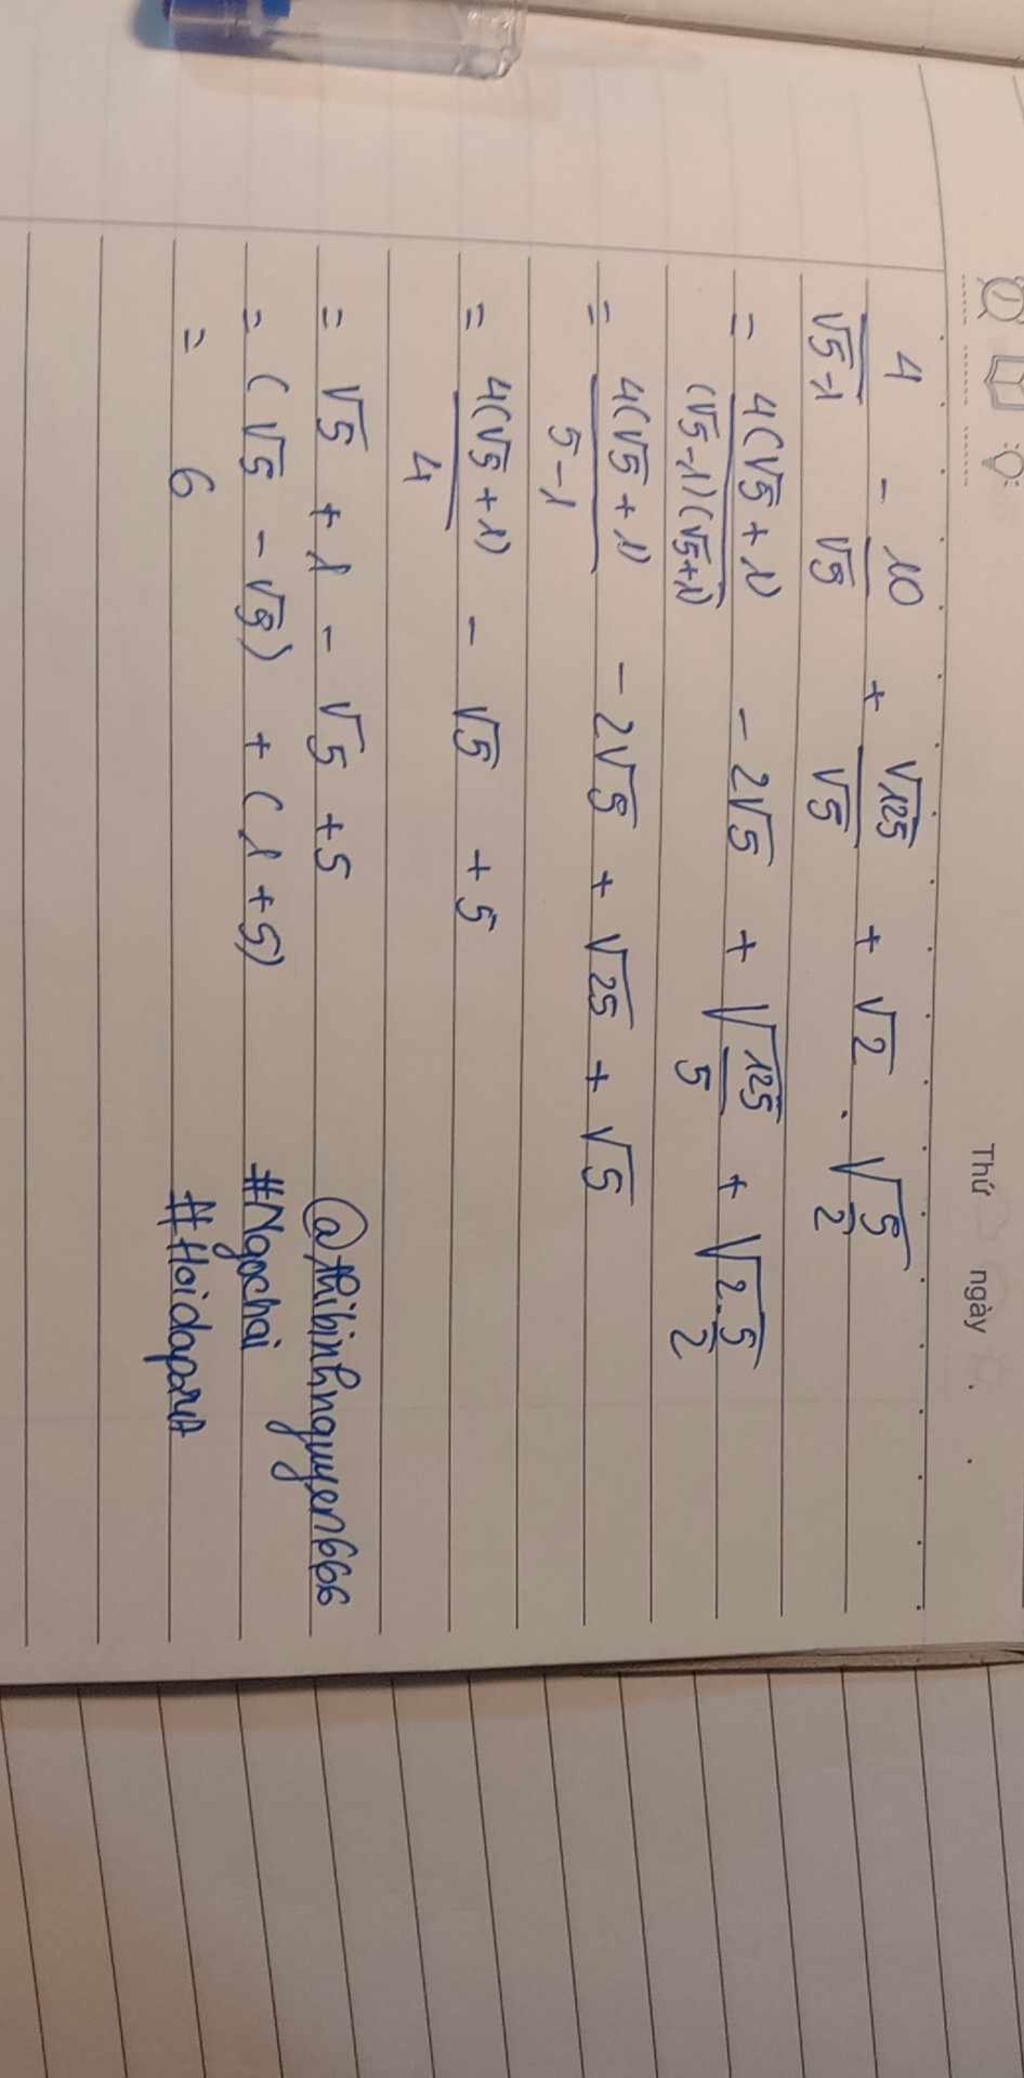 Thứ ngày
4/(√5-1) - 10/√5 + √125/√5 + √2 . √(5/2)
= 4(√5+1)/((√5-1)(√5+1)) - 2√5 + √(125/5) + √(2.5/2)
= 4(√5+1)/(5-1) - 2√5 + √25 + √5
= 4(√5+1)/4 - √5 + 5
= √5 + 1 - √5 + 5
@thibinhnguyen666
= (√5 - √5) + (1+5)
#Ngochai
= 6